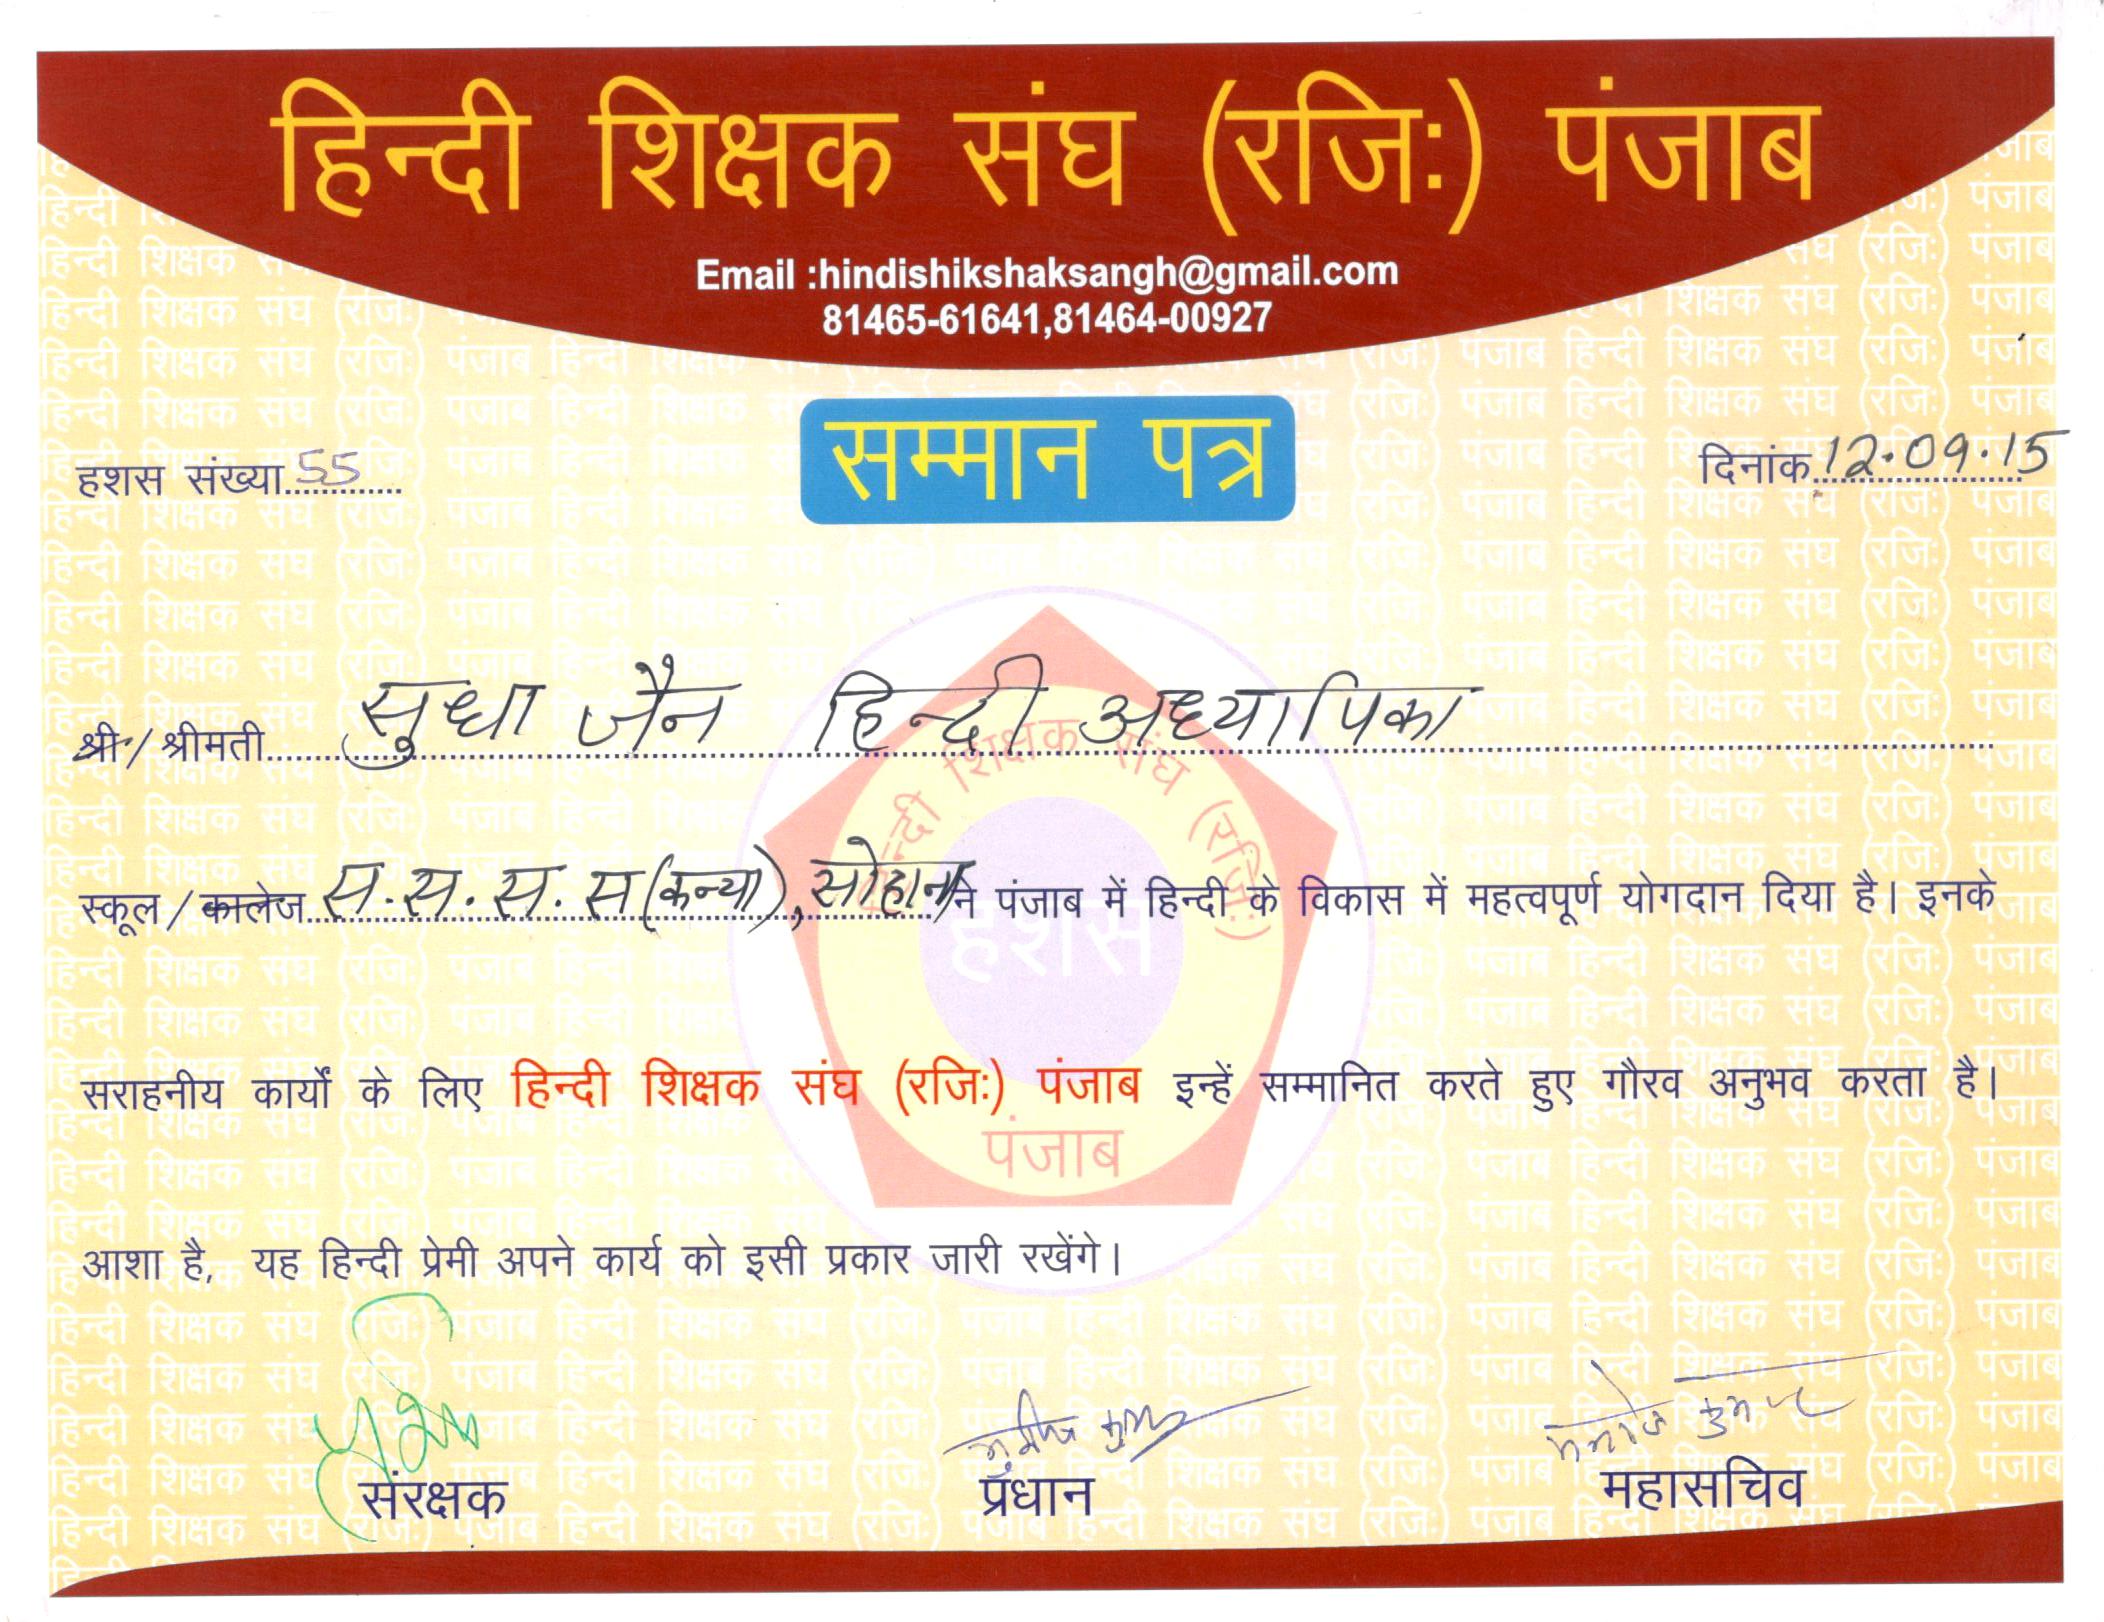 हिन्दी शिक्षक संघ (रजिः) पंजाब
Email :hindishikshaksangh@gmail.com
81465-61641,81464-00927
सम्मान पत्र
हशस संख्या 55
दिनांक 12.09.15
श्री / श्रीमती सुधा जैन हिन्दी अध्यापिका
स्कूल / कालेज स.स.स.स (कन्या), सोहाना ने पंजाब में हिन्दी के विकास में महत्वपूर्ण योगदान दिया है। इनके
सराहनीय कार्यों के लिए हिन्दी शिक्षक संघ (रजिः) पंजाब इन्हें सम्मानित करते हुए गौरव अनुभव करता है।
आशा है, यह हिन्दी प्रेमी अपने कार्य को इसी प्रकार जारी रखेंगे।
हिन्दी शिक्षक संघ (रजिः)
हशस
पंजाब
मनोज कुमार
संरक्षक
प्रधान
महासचिव